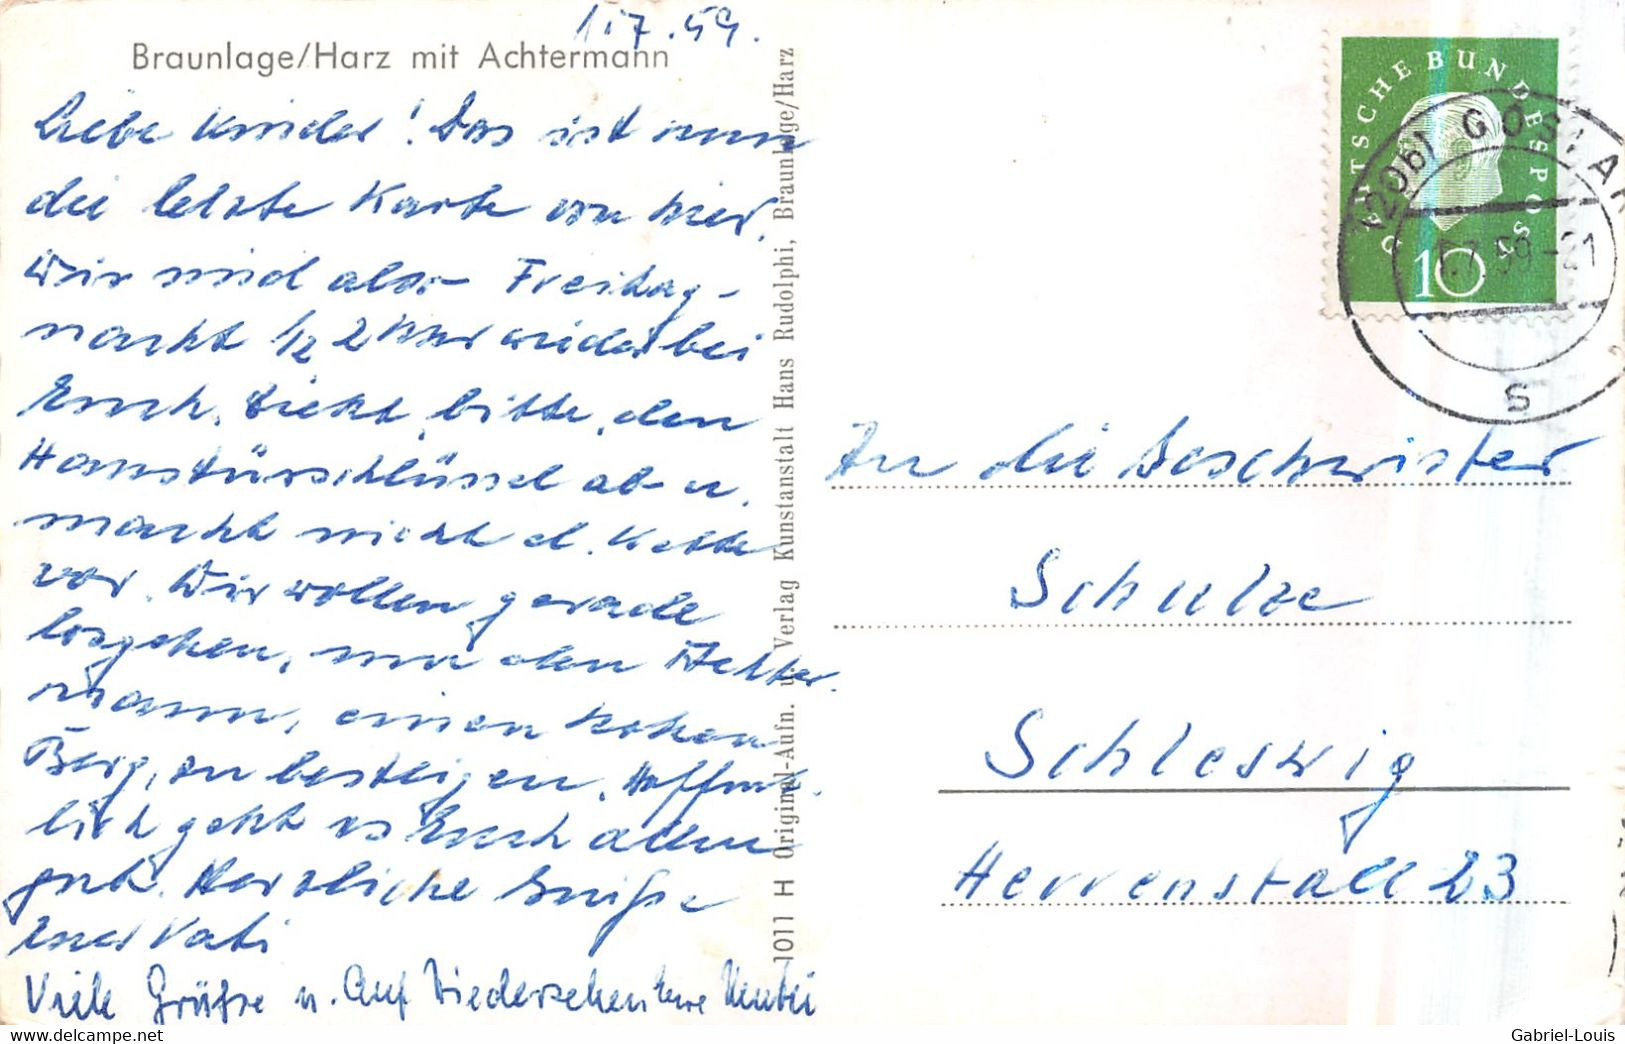 1.7.59.
Braunlage/Harz mit Achtermann
Liebe Kinder! Das ist nun
die letzte Karte von hier.
Wir sind also Freitag-
nacht 1/2 2 Uhr wieder bei
Euch. Zieht, bitte, den
Haustürschlüssel ab u.
macht nicht d. Kette
vor. Wir wollen gerade
losgehen, um den Achter-
mann, einen hohen
Berg, zu besteigen. Hoffent-
lich geht es Euch allen
gut. Herzliche Grüße
Euer Vati
Viele Grüße u. Auf Wiedersehen Eure
1011 H Original-Aufn. u. Verlag Kunstanstalt Hans Rudolphi, Braunlage/Harz
DEUTSCHE BUNDESPOST
10
(20b) GOSLAR
1.7.59-21
s
An die Geschwister
Schulze
Schleswig
Herrenstall 23
delcampe.net
Gabriel-Louis